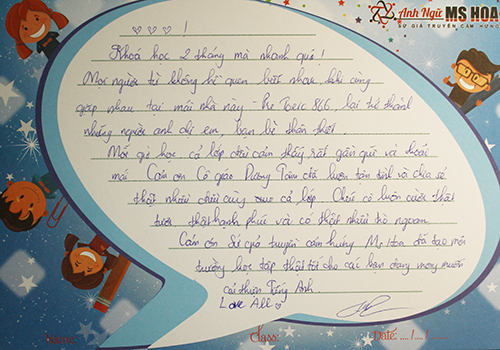 Anh Ngữ MS HOA
SỨ GIẢ TRUYỀN CẢM HỨNG
♡ ♡ ♡ !
Khoá học 2 tháng mà nhanh quá!
Mọi người từ không hề quen biết nhau khi cùng
gặp nhau tại mái nhà này - Pre Toeic 866, lại trở thành
những người anh chị em, bạn bè thân thiết.
Mỗi giờ học cả lớp đều cảm thấy rất gần gũi và thoải
mái. Cảm ơn Cô giáo Dương Tâm đã luôn tận tình và chia sẻ
thật nhiều điều cùng cả lớp. Chúc cô luôn cười thật
tươi, thật hạnh phúc và có thật nhiều trò ngoan.
Cảm ơn Sứ giả truyền cảm hứng Ms Hoa đã tạo môi
trường học tập thật tốt cho các bạn đang mong muốn
cải thiện Tiếng Anh.
Love All ♡
Name: Class: Date: ..../..../........